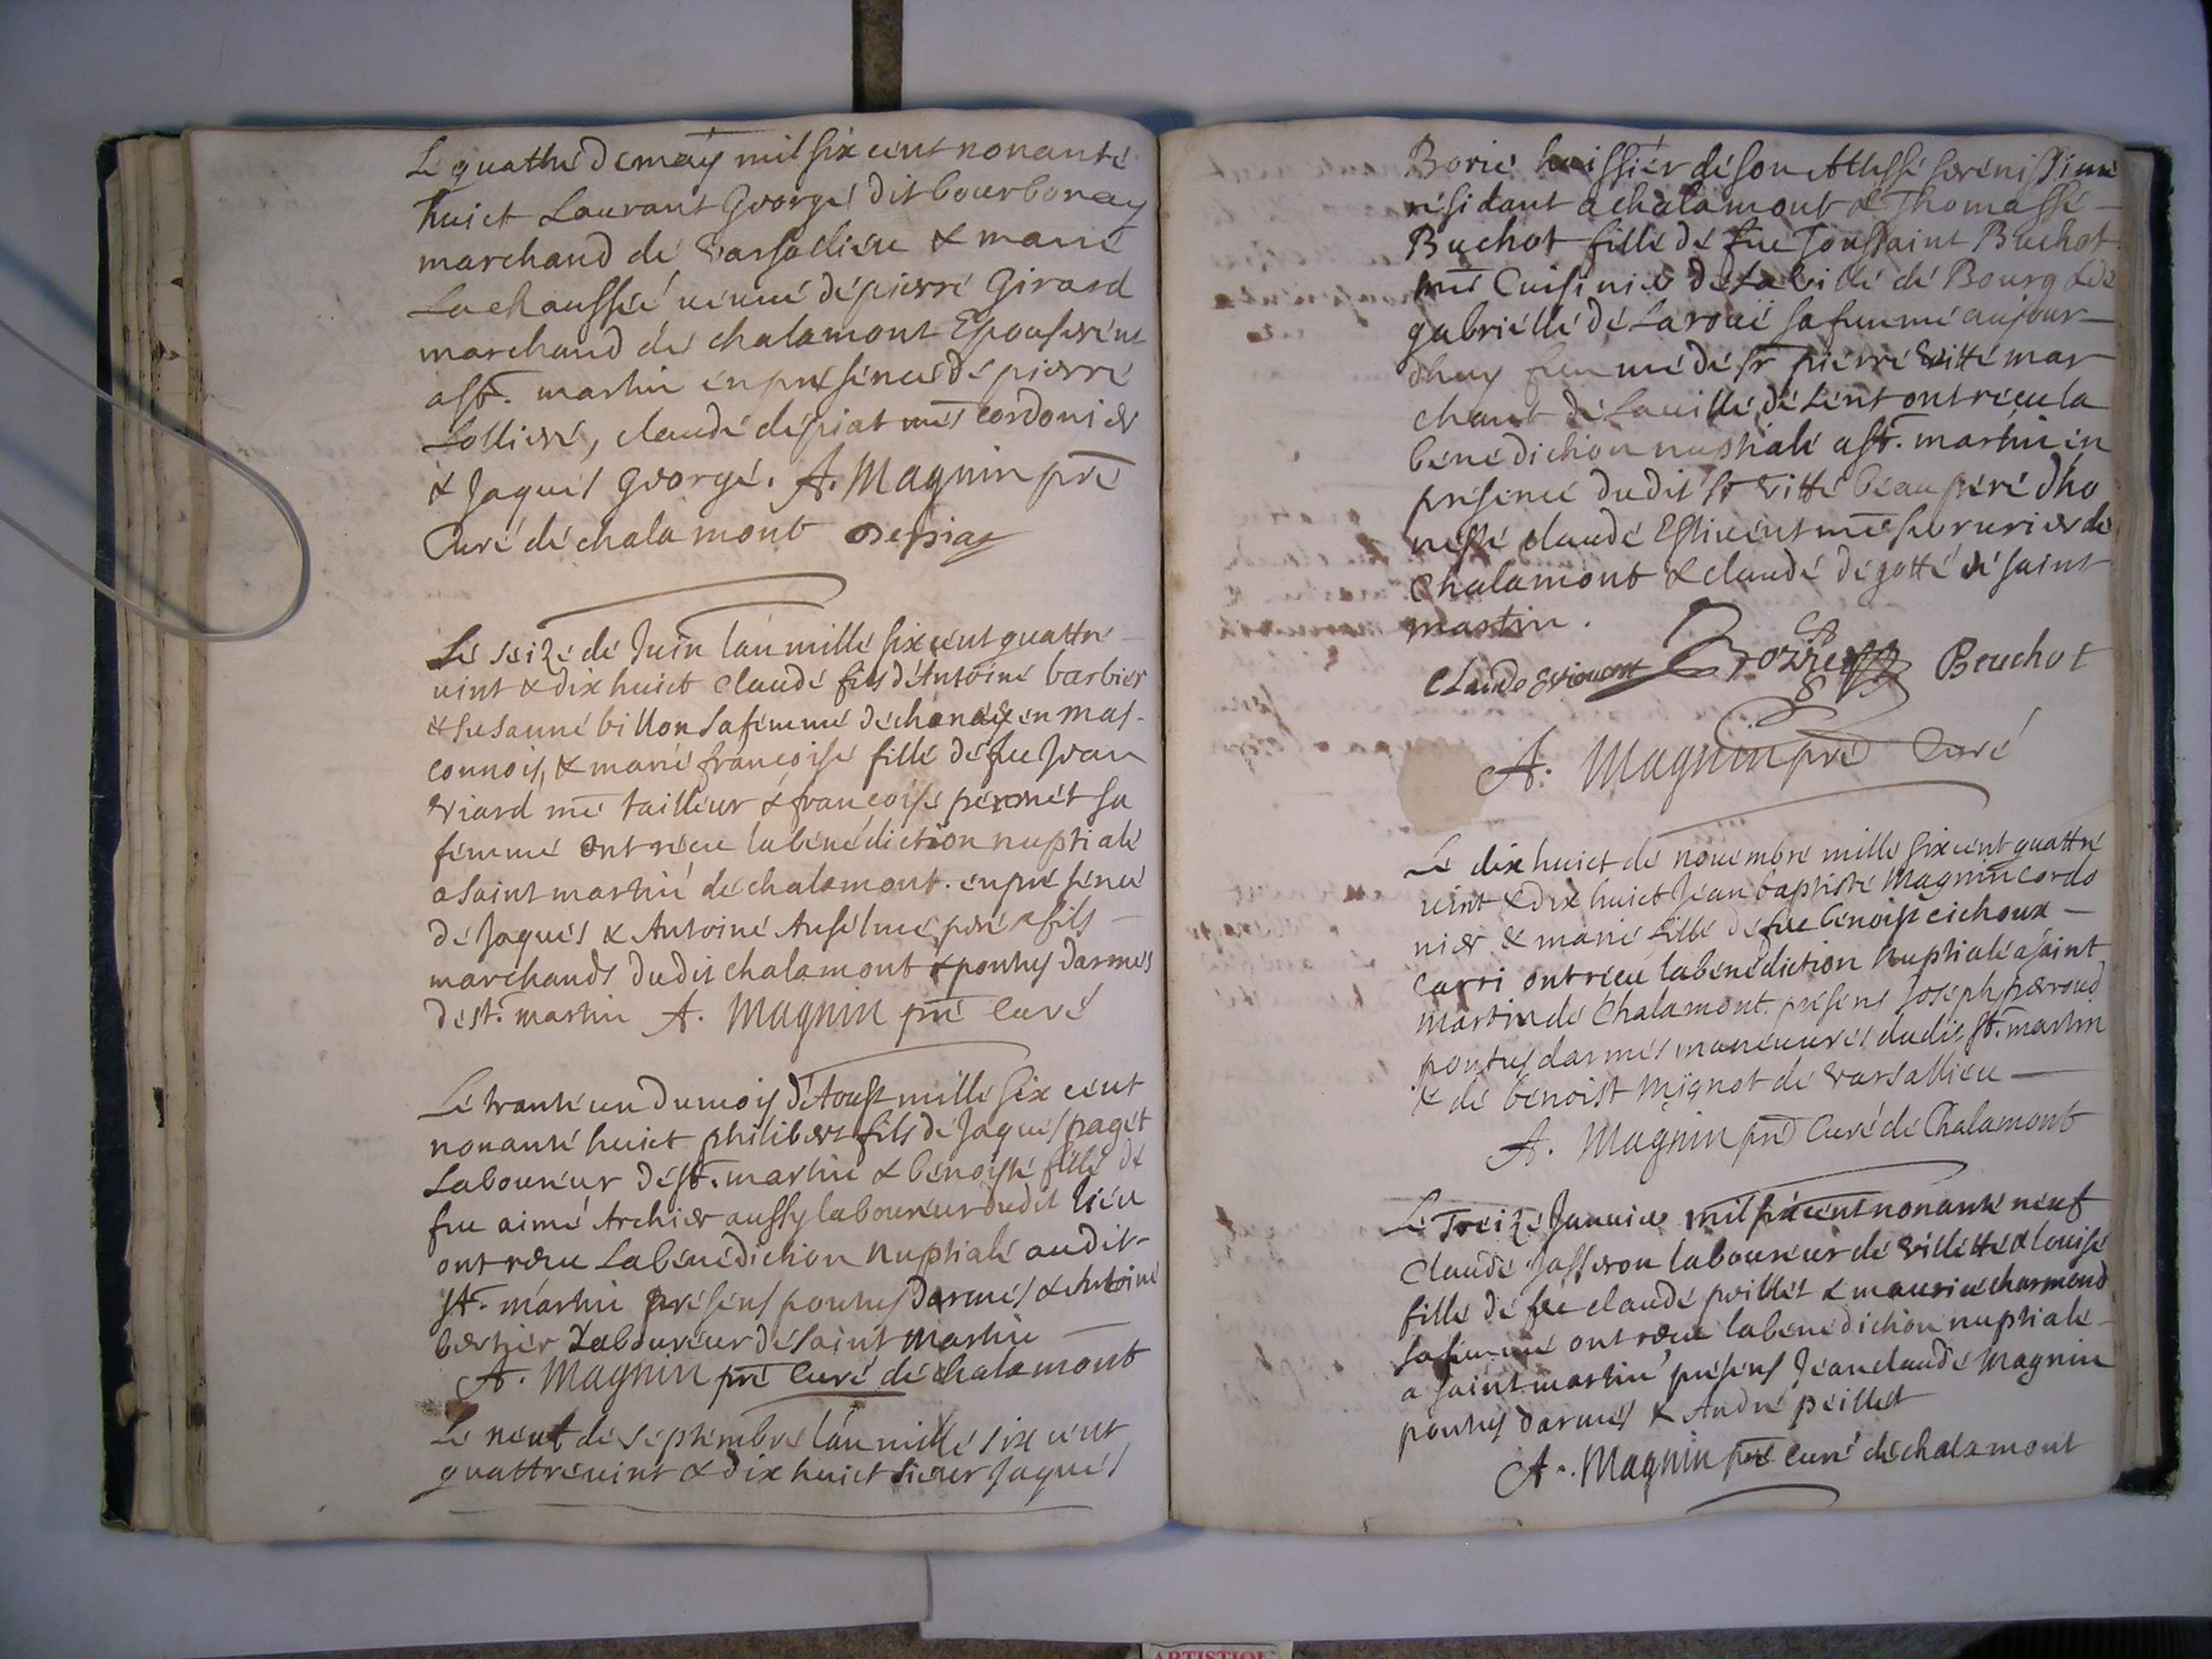 Le quattre de may mil six cent nonante
huict Laurant George dit bourbonay
marchand de Varsallieu & marie
Lachaussée veuue de pierre Girard
marchand de chalamont Epouserent
a st. martin en presence de pierre
Lolliere, claude depiat me cordonier
& Jaques George. A. Magnin pre
Curé de chalamont Depiat
Le seize de Juin lan mille six cent quattre
vint & dix huict Claude fils d'Antoine barbier
& susanne billon sa femme de chanay en mas-
connois, & marie françoise fille de feu Jean
Viard me tailleur & françoise pernet sa
femme ont receu la benediction nuptiale
a saint martin de chalamont. en presence
de Jaques & Antoine Anselme pere & fils
marchands dudit chalamont & pontus darmes
de st. martin A. Magnin pre Curé
Le trante un du mois d'Aoust mille six cent
nonante huict philibert fils de Jaques paget
Laboureur de st. martin & benoiste fille de
feu aimé Archier aussy laboureur dudit lieu
ont receu La benediction Nuptiale audit
st. martin presens pontus Darmes & Antoine
bertier Laboureur de saint Martin
A. Magnin pre Curé de chalamont
Le neuf de septembre lan mille six cent
quattrevint & dix huict sieur Jaques
Borie huissier de son Altesse serenissime
residant a chalamont & Thomasse
Buchot fille de feu Toussaint Buchot
me Cuisinier de La ville de Bourg & de
gabrielle de Laroue sa femme aujour
dhuy femme de sr pierre Vitte mar
chant de La ville de Lent ont receu la
benediction nuptiale a st. martin en
presence dudit sr Vitte beaupere dho
neste claude Estiuent me serrurier de
Chalamont & claude degotte de saint
martin.
Claude Estiuent Borie Beuchot
A. Magnin pre Curé
Le dix huict de nouembre mille six cent quattre
vint & dix huict Jean baptiste Magnin cordo
nier & marie fille de feu benoist cichoux
carri ont receu la benediction Nuptiale a saint
Martin de Chalamont. presens Joseph perroud
pontus darmes maneuures dudit st. martin
& de benoist Mignot de Varsallieu
A. Magnin pre Curé de Chalamont
Le Treize Januier mil six cent nonante neuf
Claude Josseron laboureur de Villette & louise
fille de feu claude peillet & mauricecharmond
sa femme ont receu la benediction nuptiale
a saint martin presens Jean claude Magnin
pontus darmes & André peillet
A. Magnin pre curé de chalamont
ARTISTIQUE